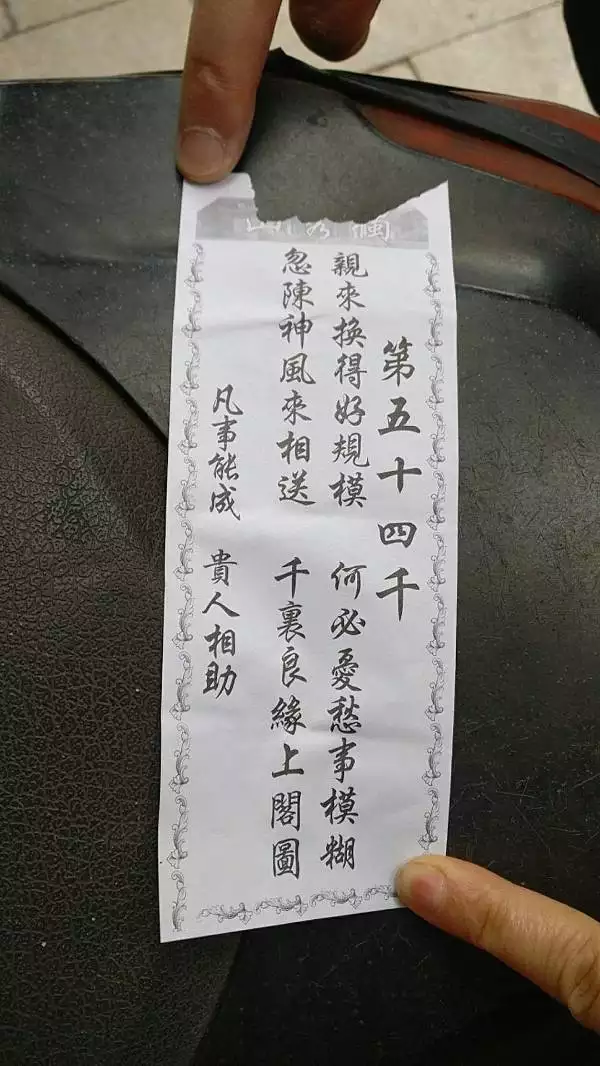 第五十四千
親來換得好規模　何必憂愁事模糊
忽陳神風來相送　千裏良緣上閣圖
凡事能成　貴人相助